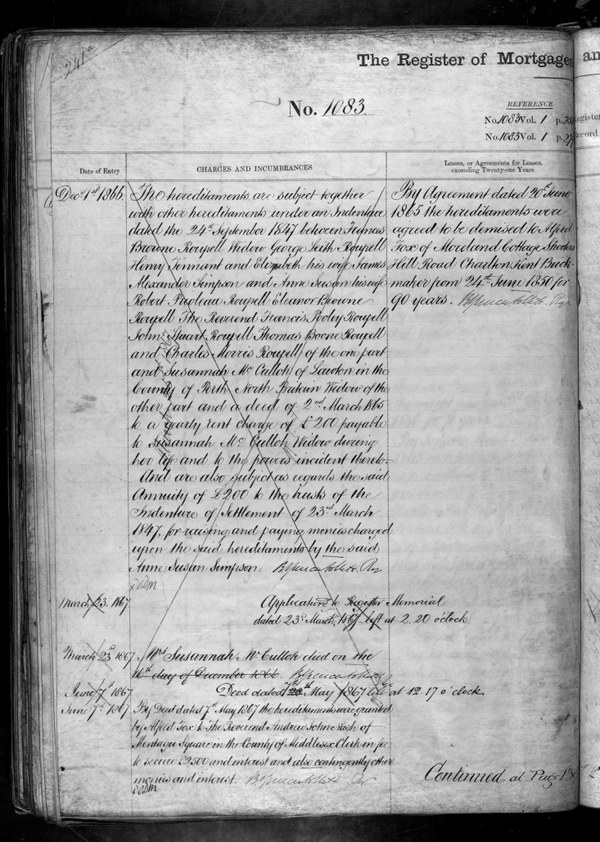 241a
The Register of Mortgages an
No. 1083.
REFERENCE
No. 1083 Vol. 1 p.
No. 1083 Vol. 1 p.
Date of Entry
CHARGES AND INCUMBRANCES
Leases, or Agreements for Leases, exceeding Twenty-one Years
Decr. 1st 1866.
The hereditaments are subject together
with other hereditaments under an Indenture
dated the 24th September 1847 between Thomas
Browne Roupell Widow George Leith Roupell
Henry Tennant and Elizabeth his wife James
Alexander Simpson and Anne Susan his wife
Robert Prioleau Roupell Eleanor Browne
Roupell The Reverend Francis Pooley Roupell
John Stuart Roupell Thomas Boone Roupell
and Charles Morris Roupell of the one part
and Susannah Mc Culloh of Lawton in the
County of Perth North Britain Widow of the
other part and a deed of 2nd March 1865
to a yearly rent charge of £200 payable
to Susannah Mc Culloh Widow during
her life and to the powers incident thereto.
And are also subject as regards the said
Annuity of £200 to the trusts of the
Indenture of Settlement of 23rd March
1847, for raising and paying monies charged
upon the said hereditaments by the said
Anne Susan Simpson.
By Agreement dated 20th June
1865 the hereditaments were
agreed to be demised to Alfred
Fox of Moreland Cottage
Hill Road Charlton Kent Brick-
maker from 24th June 1850 for
90 years.
March 23. 1867
Application to Register Memorial
dated 23rd March, 1867 left at 2.20 o'clock
March 23rd 1867
Mrs Susannah Mc Culloh died on the
16th day of December 1866.
June 7th 1867
Deed dated 7th May 1867 left at 12.17 o'clock.
June 7th 1867
By Deed dated 7th May 1867 the hereditaments were granted
by Alfred Fox to The Reverend Andrew John of
Montagu Square in the County of Middlesex Clerk in fee
to secure £2500 and interest and also contingently other
monies and interest.
Continued at Page